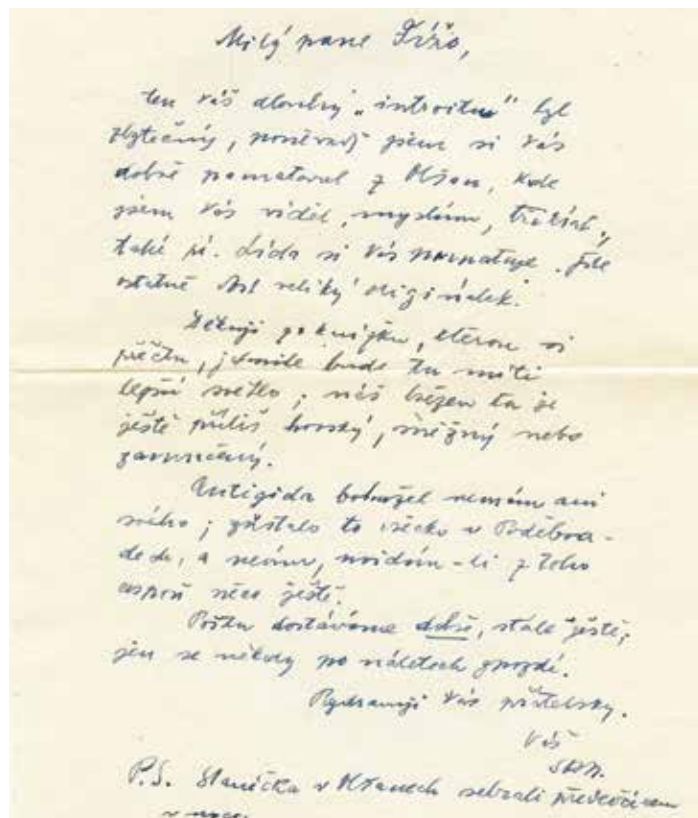 Milý pane Fížo,
ten Váš dlouhý „introitus“ byl
zbytečný, poněvadž jsem si Vás
dobře pamatoval z Olšan, kde
jsem Vás viděl, myslím, třikrát,
také pí. Lída si Vás pamatuje. Jste
ostatně dost veliký originálek.
Děkuji za knížku, kterou si
přečtu, jakmile bude tu míti
lepší světlo; náš březen tu je
ještě příliš horský, sněžný nebo
zamračený.
Antigida bohužel nemám ani
svého; zůstalo to všecko v Poděbra-
dech, a nevím, uvidím-li z toho
aspoň něco ještě.
Poštu dostáváme dobře, stále ještě,
jen se někdy po náletech zpozdí.
Pozdravuji Vás přátelsky.
Váš
P.S. Staníčka v Olšanech sebrali předevčírem
v noci